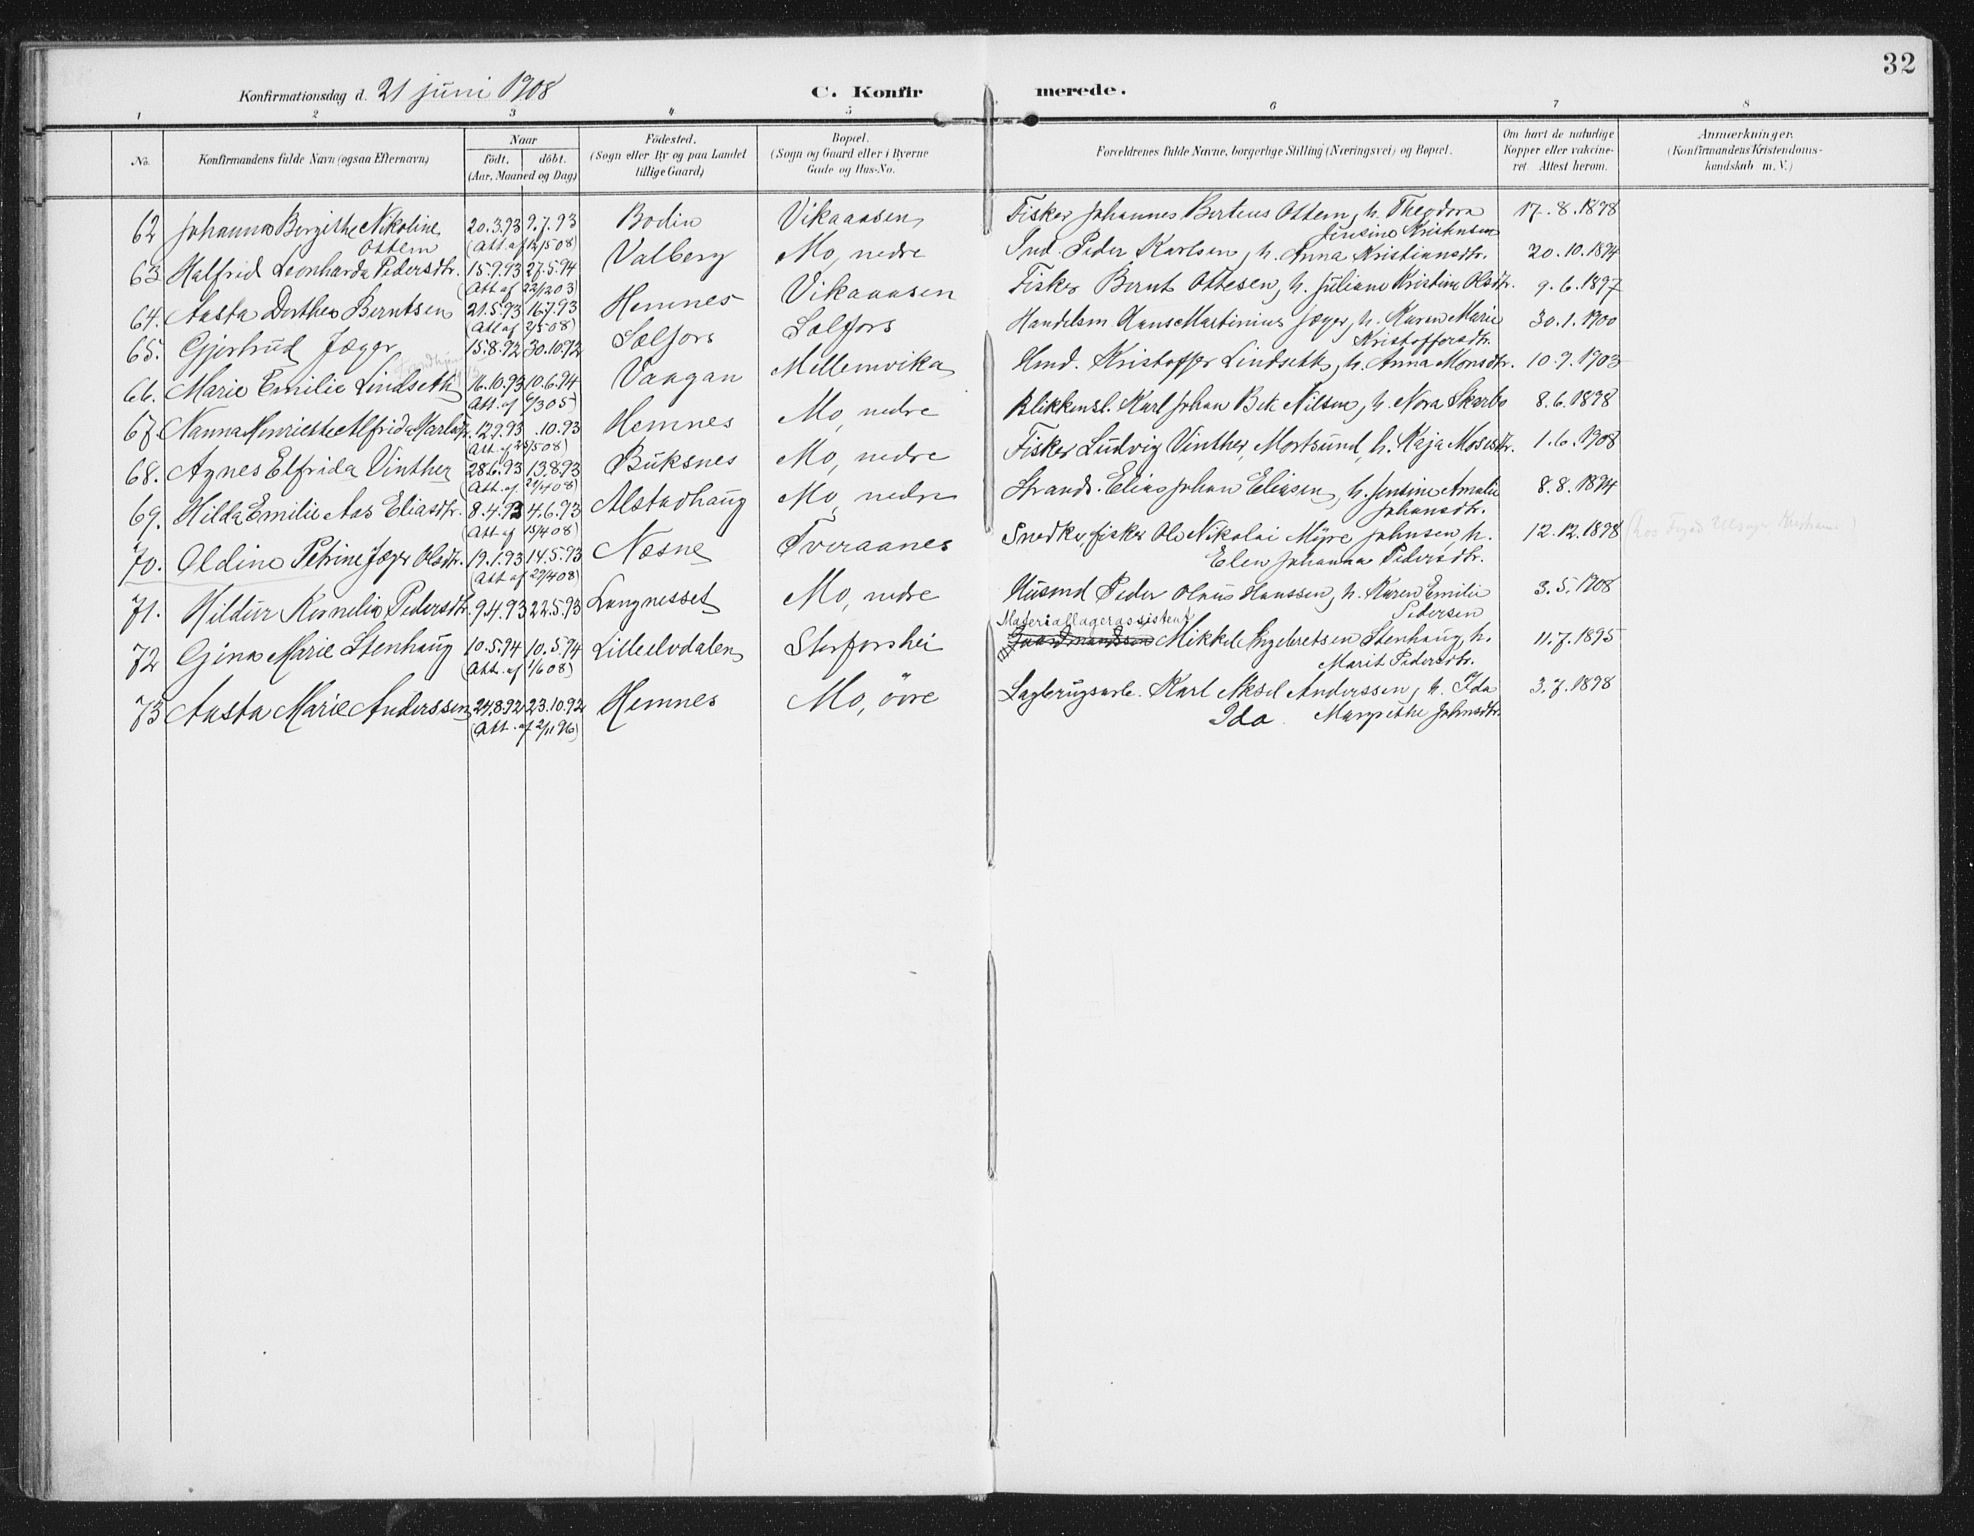 32
Konfirmationsdag d. 21 juni 1908 C. Konfir merede.
1 2 3 4 5 6 7 8
No. Konfirmandens fulde Navn (ogsaa Efternavn) Naar Födested. Bopæl. Forældrenes fulde Navne, borgerlige Stilling (Næringsvei) og Bopæl. Om havt de naturlige Anmærkninger.
födt. döbt. (Sogn eller By og paa Landet (Sogn og Gaard eller i Byerne Kopper eller vakcine- (Konfirmandens Kristendoms-
(Aar, Maaned og Dag) tillige Gaard) Gade og Hus-No. ret. Attest herom. kundskab m. V.)
62 Johanna Bergithe Nikoline 20.3.93 9.7.93 Bodin Vikaaasen Fisker Johannes Berteus Ottem, h. Theodora 17.8.1898
Ottem (Att. af 12/5 08) Jensine Kristensen
63 Halfrid Leonharda Pedersdtr. 15.9.93 27.5.94 Valberg Mo, nedre Ind. Peder Karlsen, h. Anna Kristiansdtr. 20.10.1894
(Att af 22/12 03)
64. Aasta Dorthea Berntsen 21.5.93 16.7.93 Hemnes Vikaaasen Fisker Bernt Ottesen, h. Juliane Kristine Olsdtr. 9.6.1897
(Att af 2/5 08)
65. Gjertrud Jæger 15.8.92 30.10.92 Selfors Selfors Handelsm Hans Martinius Jæger, h. Karen Marie 30.1.1900
Kristoffersdtr.
66. Marie Emilie Lindseth 16.10.93 10.6.94 Vaagan Mellemvika Hmd. Kristoffer Lindseth, h. Anna Monsdtr. 10.9.1903
Att. af 6/3 05)
67. Nanna Henriette Alfrida Karlsdtr. 12.9.93 .10.93 Hemnes Mo, nedre Blikkensl. Karl Johan Bek Nilsen, h. Nora Skarbo 8.6.1898
Att. af 25/5 08)
68. Agnes Elfrida Vinther 28.6.93 13.8.93 Buksnes Mo, nedre Fisker Ludvig Vinther, Mortsund, h. Kaja Mosesdtr. 1.6.1908
(Att. af 21/4 08)
69. Hilda Emilie Aas Eliasdtr. 8.4.93 4.6.93 Alstadhaug Mo, nedre Strands. Elias Johan Eliasen, h. Jensine Amalie 8.8.1894
(Att af 15/4 08) Johansdtr.
70. Oldine Petrine Jæger Olsdtr. 19.1.93 14.5.93 Næsne Tveraanes Snedker, fisker Ole Nikolai Myre Johnsen, h. 12.12.1898
(Att af 29/4 08) Elen Johanna Pedersdtr.
71. Hildur Kornelia Pedersdtr. 9.4.93 22.5.93 Langnesset Mo, nedre Husmd Peder Olaus Hanssen, h. Karen Emilie 3.5.1908
Pedersen
Materiallagerassistent
72 Gina Marie Stenhaug 10.5.94 10.5.94 Lilleelvdalen Storforshei Gaardmandsen Mikkel Engebretsen Stenhaug, h. 11.7.1895
(Att. af 1/6 08) Marit Pedersdtr.
73 Aasta Marie Anderssen 24.8.92 23.10.92 Hemnes Mo, övre Sagbrugsarb. Karl Aksel Anderssen, h. Ida 3.7.1898
(Att. af 2/11 96) Ida Margrethe Johnsdtr.